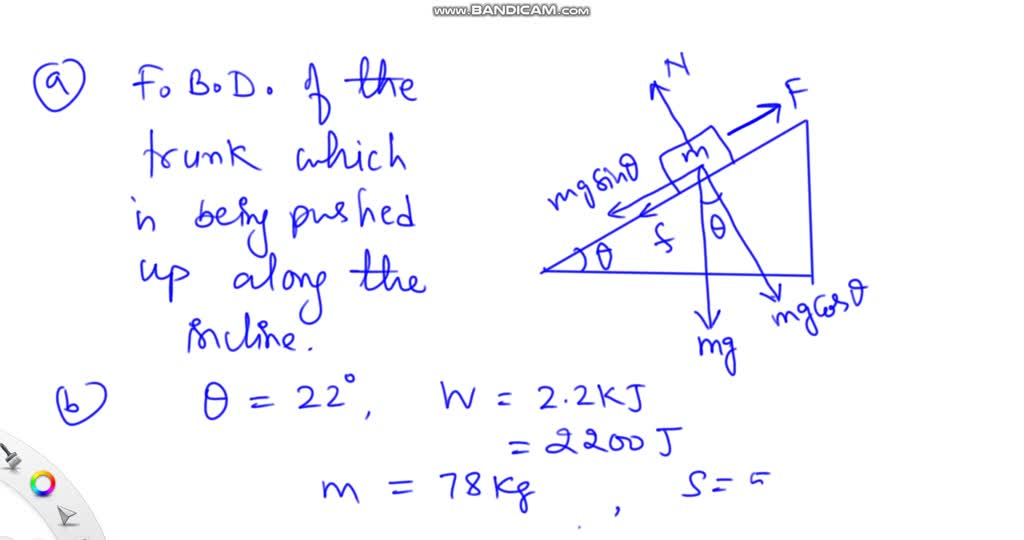 www.BANDICAM.com
(a) F.B.D. of the
trunk which
is being pushed
up along the
incline.
N
F
m
mg sinθ
f
θ
θ
mg cosθ
mg
(b) θ = 22°, W = 2.2KJ
= 2200 J
m = 78 kg , S =